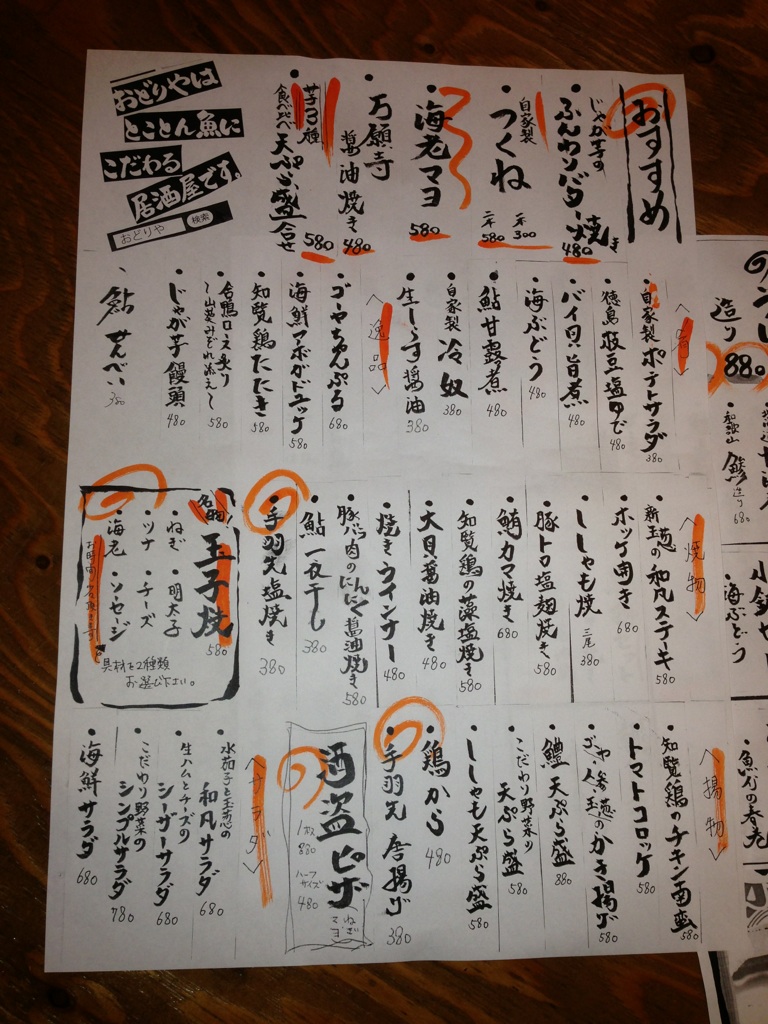 おすすめ
じゃが芋の
ふんわりバター焼き 480
自家製
つくね
一本 300
二本 580
海老マヨ 580
万願寺
醤油焼き 480
芋3種
食べ比べ 天ぷら盛合せ 580
おどりやは
とことん魚に
こだわる
居酒屋です。
おどりや 検索
自家製 ポテトサラダ 380
徳島 枝豆塩ゆで 480
バイ貝旨煮 480
海ぶどう 480
鮎甘露煮 480
自家製 冷奴 380
生しらす醤油 380
<逸品>
ゴーヤちゃんぷる 680
海鮮マーボガドユッケ 580
知覧鶏たたき 580
合鴨ロース炙り
～山葵みぞれ添え～ 580
じゃが芋饅頭 480
鮎せんべい 380
<焼物>
新玉葱の和風ステーキ 580
ホッケ開き 680
ししゃも焼 三尾 380
豚トロ塩麹焼き 580
鮪カマ焼き 680
知覧鶏の藻塩焼き 580
大貝醤油焼き 480
焼きウインナー 480
豚バラ肉のにんにく醤油焼き 580
鮎一夜干し 380
手羽先塩焼き 380
名物!
玉子焼 580
・ねぎ ・明太子
・ツナ ・チーズ
・海老 ・ソーセージ
具材を2種類
お選び下さい。
<揚物>
知覧鶏のチキン南蛮 580
トマトコロッケ 580
ゴーヤ・人参・玉葱のかき揚げ 580
鱧天ぷら盛 880
こだわり野菜の
天ぷら盛 580
ししゃも天ぷら盛 580
鶏から 480
手羽先唐揚げ 380
酒盗ピザ
1枚 880
ハーフサイズ 480
ねぎ
マヨ
<サラダ>
水茄子と玉葱の
和風サラダ 680
生ハムとチーズの
シーザーサラダ 680
こだわり野菜の
シンプルサラダ 780
海鮮サラダ 680
造り 880
和歌山 鯵 造り 680
海ぶどう